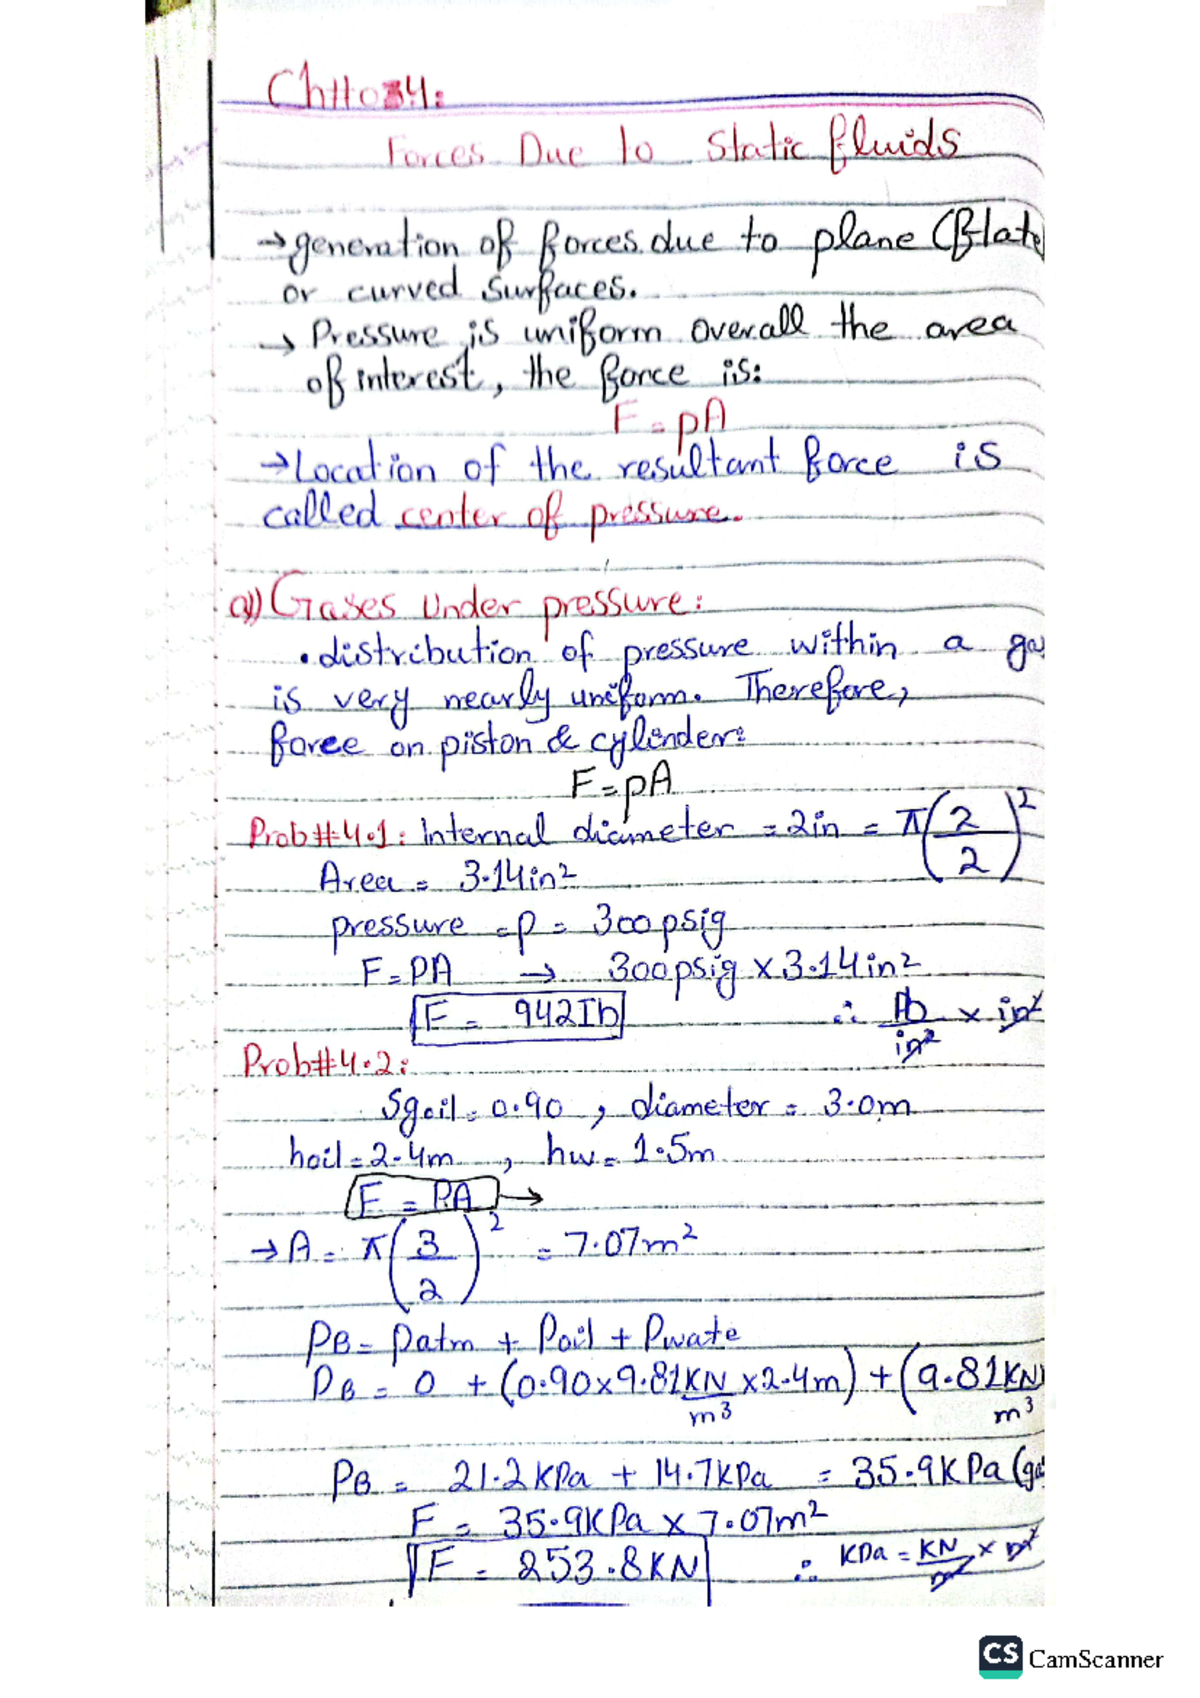 Ch#04:
Forces Due to Static fluids
→ generation of forces due to plane (flat
or curved surfaces.
→ Pressure is uniform overall the area
of interest, the force is:
F = pA
→ Location of the resultant force is
called center of pressure.
a)) Gases Under pressure:
• distribution of pressure within a gas
is very nearly uniform. Therefore,
force on piston & cylinder:
F = pA
Prob#4.1: Internal diameter = 2in = π(2/2)²
Area = 3.14in²
pressure = p = 300psig
F = PA → 300psig × 3.14in²
F = 942Ib ∴ lb/in² × in²
Prob#4.2:
Sgoil = 0.90 , diameter = 3.0m
hoil = 2.4m , hw = 1.5m
F = PA →
→ A = π(3/2)² = 7.07m²
PB = Patm + Poil + Pwate
PB = 0 + (0.90×9.81KN/m³ ×2.4m) + (9.81KN/m³
PB = 21.2KPa + 14.7KPa = 35.9KPa (ga
F = 35.9KPa × 7.07m²
F = 253.8KN ∴ KPa = KN/m² × m²
CS CamScanner